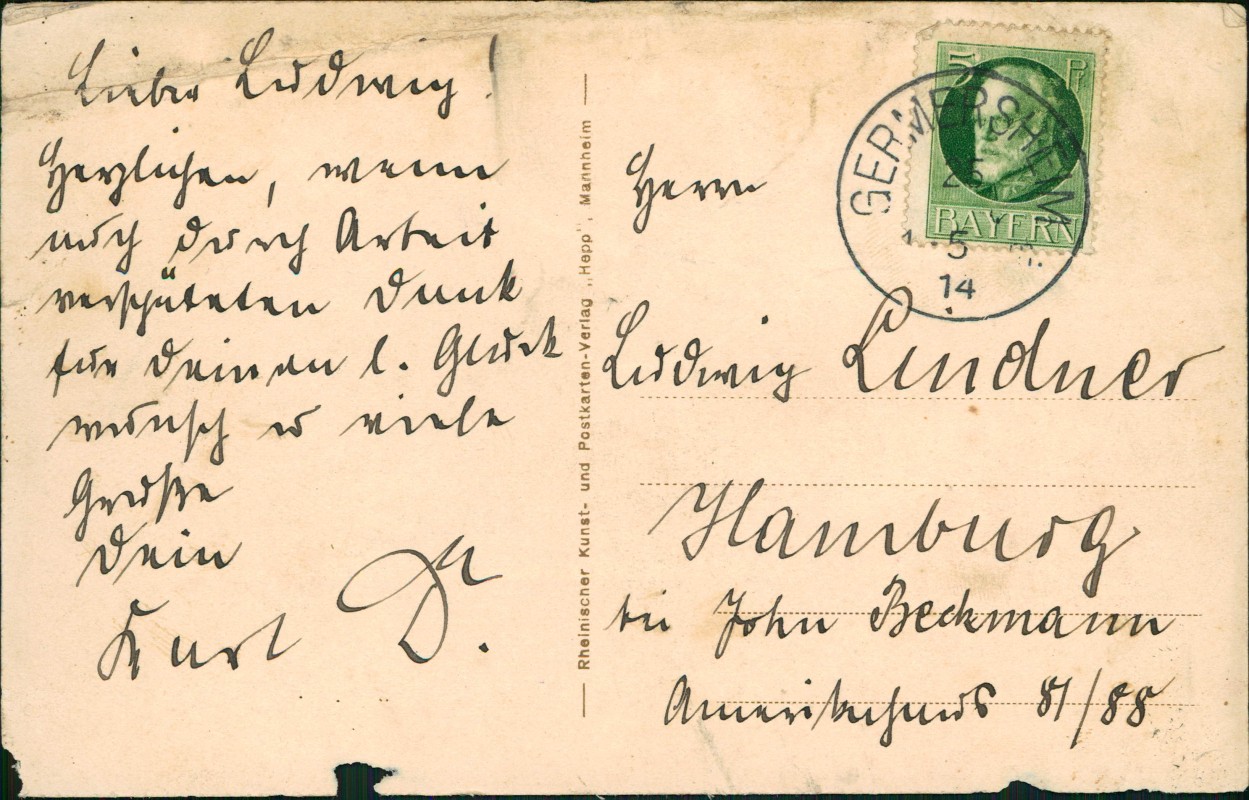 Lieber Ludwig!
Herzlichen, wenn
auch durch Arbeit
verspäteten Dank
für Deinen l. Glück
wunsch u viele
Grüße
Dein
Kurt D.
Rheinischer Kunst- und Postkarten-Verlag „Hepp", Mannheim
5 Pf
BAYERN
GERMERSHEIM
25
5
14
Herrn
Ludwig Lindner
Hamburg
bei John Beckmann
Amerikahaus 81/88